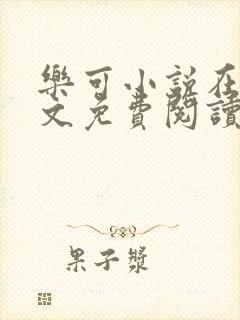 樂可小說在
文免費閱讀
果子漿